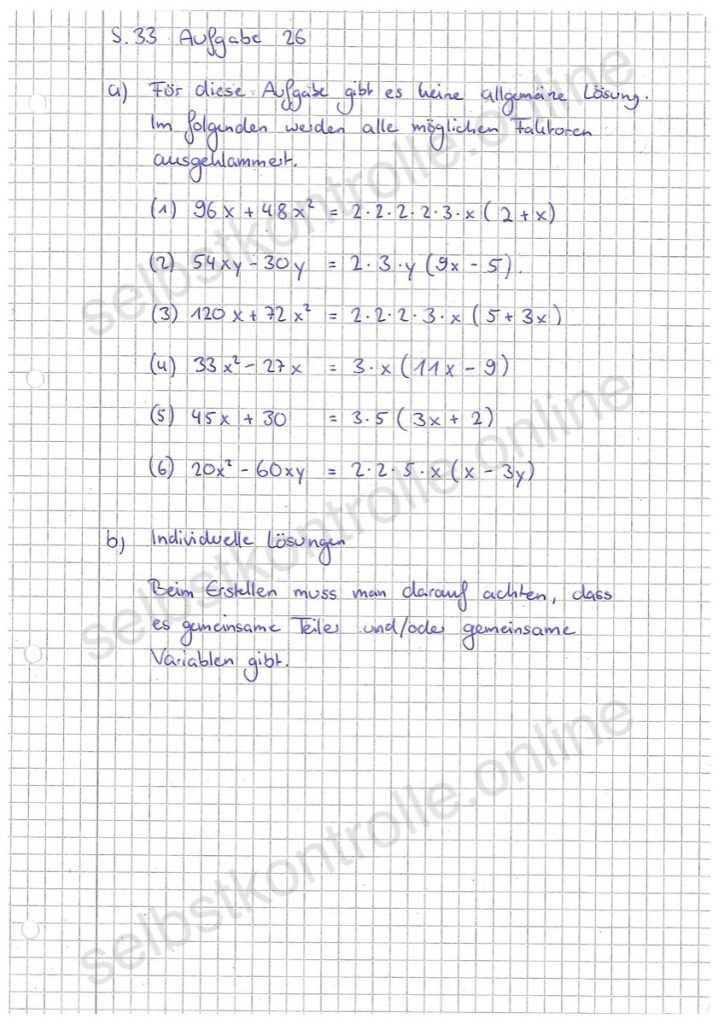 S. 33 Aufgabe 26
a) Für diese Aufgabe gibt es keine allgemeine Lösung.
Im folgenden werden alle möglichen Faktoren
ausgeklammert.
(1) 96x + 48x² = 2·2·2·2·3·x(2+x)
(2) 54xy - 30y = 2·3·y(9x - 5).
(3) 120x + 72x² = 2·2·2·3·x(5+3x)
(4) 33x² - 27x = 3·x(11x - 9)
(5) 45x + 30 = 3·5(3x + 2)
(6) 20x² - 60xy = 2·2·5·x(x - 3y)
b) Individuelle Lösungen
Beim Erstellen muss man darauf achten, dass
es gemeinsame Teiler und/oder gemeinsame
Variablen gibt.
selbstkontrolle.online
selbstkontrolle.online
selbstkontrolle.online